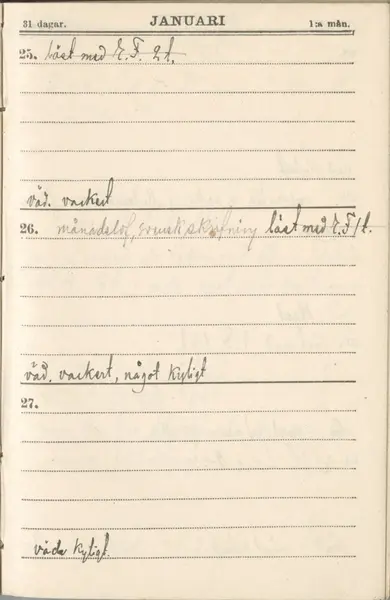 31 dagar. JANUARI 1:a mån.
25. Läst med E. F. 2 t.
väd. vackert
26. månadslof, svensk skrifning läst med E. F 1 t.
väd. vackert, något kyligt
27.
väde kyligt.